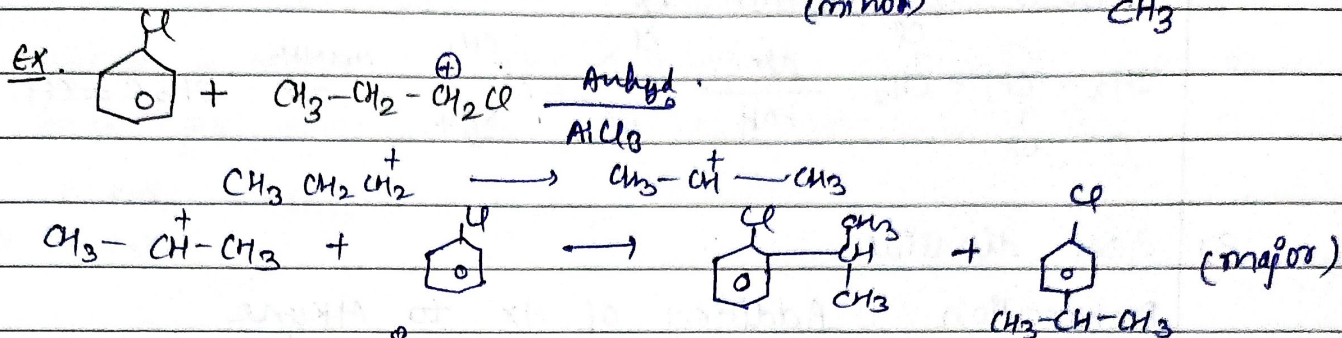 (minor) CH3
Ex. Cl + CH3-CH2-CH2Cl ⊕ Anhyd. AlCl3
CH3 CH2 CH2+ ⟶ CH3-CH+-CH3
CH3-CH+-CH3 + Cl ⟶ Cl CH3 CH CH3 + Cl CH3-CH-CH3 (major)